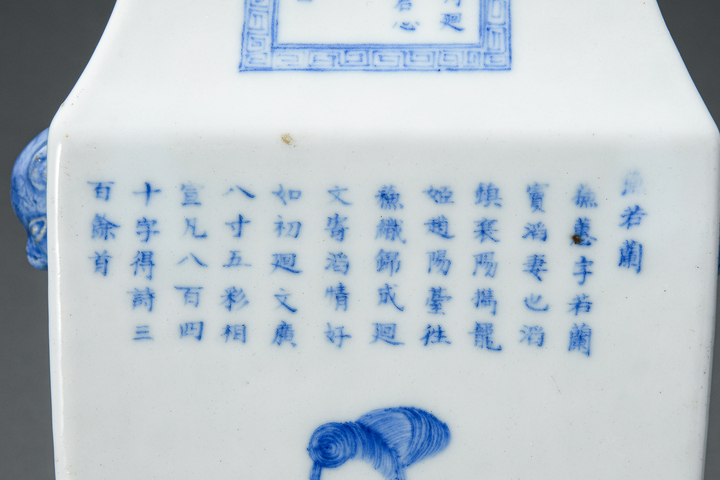 廻
心
蘇若蘭
蘇蕙字若蘭
竇滔妻也滔
鎮襄陽攜寵
姬趙陽臺往
蘇織錦成廻
文寄滔情好
如初廻文廣
八寸五彩相
宣凡八百四
十字得詩三
百餘首